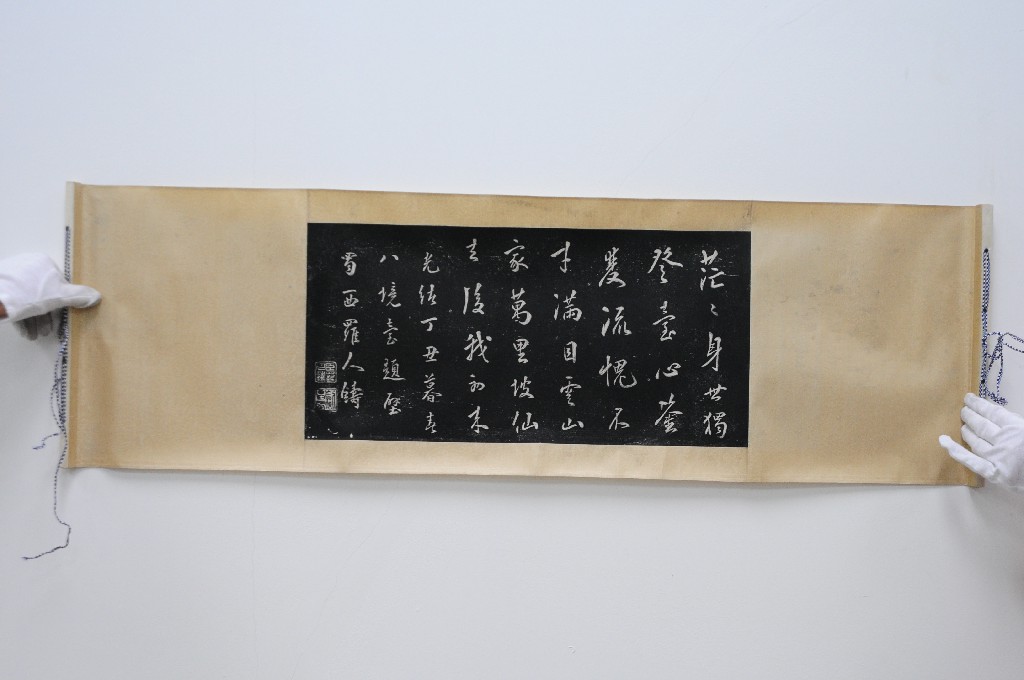 茫〻身世獨
登臺心鑒
雙流愧不
才滿目雲山
家萬里坡仙
去後我初來
光緒丁丑暮春
八境臺題壁
蜀西羅人鑄